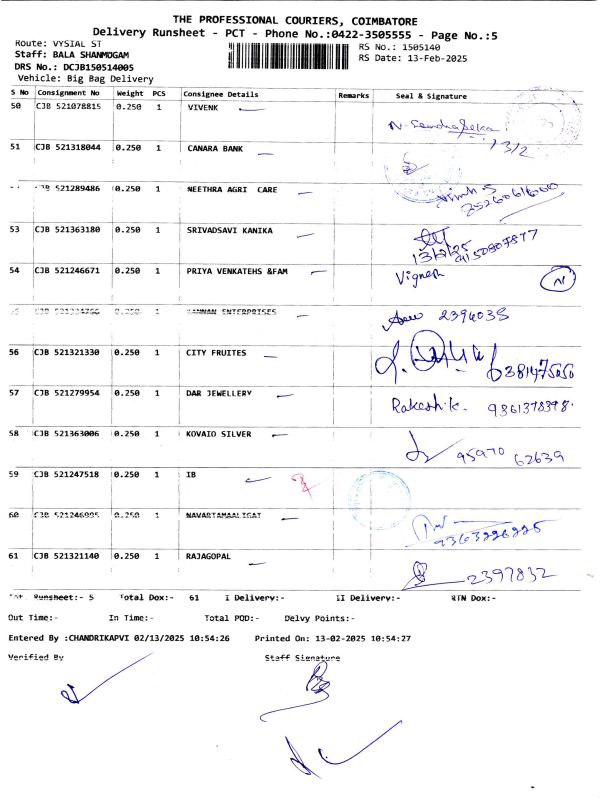 THE PROFESSIONAL COURIERS, COIMBATORE
Delivery Runsheet - PCT - Phone No.:0422-3505555 - Page No.:5
Route: VYSIAL ST
Staff: BALA SHANMOGAM
DRS No.: DCJB150514005
Vehicle: Big Bag Delivery
RS No.: 1505140
RS Date: 13-Feb-2025
S No Consignment No Weight PCS Consignee Details Remarks Seal & Signature
50 CJB 521078815 0.250 1 VIVENK
13/2
51 CJB 521318044 0.250 1 CANARA BANK
CJB 521289486 0.250 1 NEETHRA AGRI CARE
53 CJB 521363180 0.250 1 SRIVADSAVI KANIKA
13/2/25
54 CJB 521246671 0.250 1 PRIYA VENKATEHS &FAM Vignesh
0.250 1 KANNAN ENTERPRISES 2394035
56 CJB 521321330 0.250 1 CITY FRUITES
57 CJB 521279954 0.250 1 DAR JEWELLERY Rakesh.K. 9861378398
58 CJB 521363006 0.250 1 KOVAIO SILVER 95970 62639
59 CJB 521247518 0.250 1 IB
60 CJB 521246995 0.250 1 NAVARTAMAALIGAI
61 CJB 521321140 0.250 1 RAJAGOPAL 2397832
Tot. Runsheet:- 5 Total Dox:- 61 I Delivery:- II Delivery:- RTN Dox:-
Out Time:- In Time:- Total POD:- Delvy Points:-
Entered By :CHANDRIKAPVI 02/13/2025 10:54:26 Printed On: 13-02-2025 10:54:27
Verified By Staff Signature